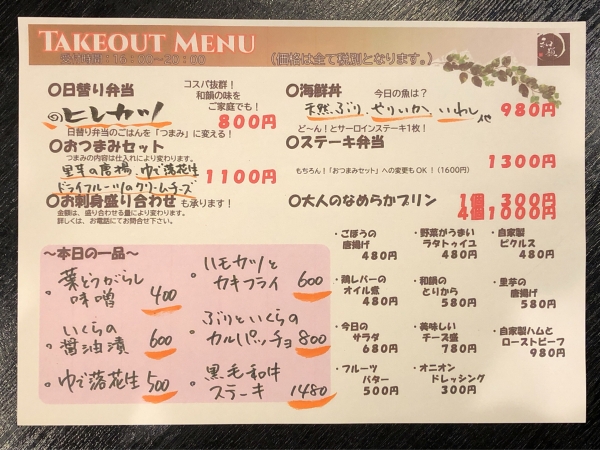 TAKEOUT MENU
受付時間：16：30～20：00
（価格は全て税別となります。）
和韻
◎日替り弁当
コスパ抜群！
和韻の味を
ご家庭でも！
ヒレカツ
800円
日替り弁当のごはんを「つまみ」に変える！
◎おつまみセット
つまみの内容は仕入により変わります。
里芋の唐揚、ゆで落花生
ドライフルーツのクリームチーズ
1100円
◎お刺身盛り合わせ も承ります！
金額は、盛り合わせる量により変わります。
詳しくは、お電話にてお問合せ下さい。
◎海鮮丼
今日の魚は？
天然ぶり、やりいか、いわし他
980円
ど～ん！とサーロインステーキ1枚！
◎ステーキ弁当
1300円
もちろん！「おつまみセット」への変更もOK！（1600円）
◎大人のなめらかプリン
1個 300円
4個1000円
～本日の一品～
・葉とうがらし
味噌 400
・いくらの
醤油漬 600
・ゆで落花生 500
・ハモカツと
カキフライ 600
・ぶりといくらの
カルパッチョ 800
・黒毛和牛
ステーキ 1480
・ごぼうの
唐揚げ
480円
・野菜がうまい
ラタトゥイユ
480円
・自家製
ピクルス
480円
・鶏レバーの
オイル煮
480円
・和韻の
とりから
580円
・里芋の
唐揚げ
580円
・今日の
サラダ
680円
・美味しい
チーズ盛
780円
・自家製ハムと
ローストビーフ
980円
・フルーツ
バター
500円
・オニオン
ドレッシング
300円